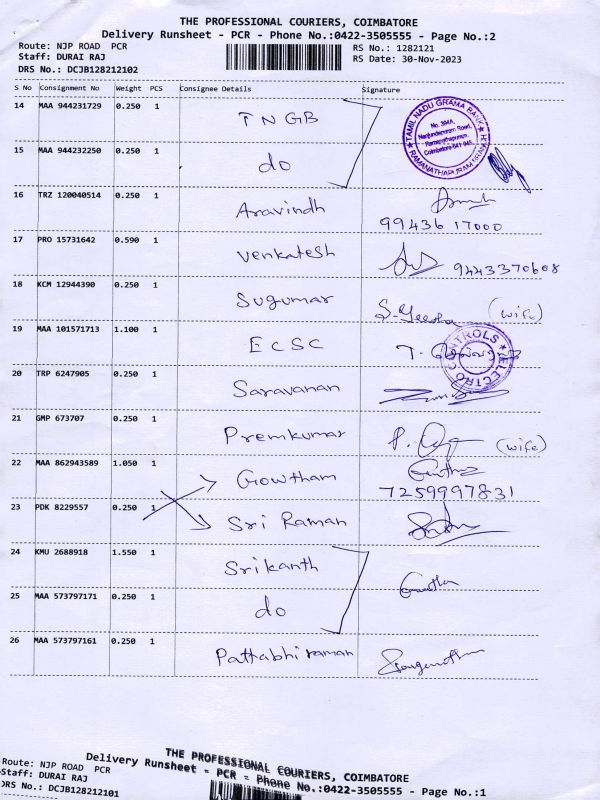 THE PROFESSIONAL COURIERS, COIMBATORE
Delivery Runsheet - PCR - Phone No.:0422-3505555 - Page No.:2
Route: NJP ROAD PCR
RS No.: 1282121
Staff: DURAI RAJ
RS Date: 30-Nov-2023
DRS No.: DCJB128212102
S No Consignment No Weight PCS Consignee Details Signature
14 MAA 944231729 0.250 1 TNGB
TAMIL NADU GRAMA BANK
No. 394A,
Nanjundapuram Road,
Ramanathapuram,
Coimbatore-641 045.
RAMANATHAPURAM BRANCH
15 MAA 944232250 0.250 1 do
16 TRZ 120040514 0.250 1 Aravindh
99436 17000
17 PRO 15731642 0.590 1 Venkatesh 9443370608
18 KCM 12944390 0.250 1 Sugumar (wife)
19 MAA 101571713 1.100 1 ECSC
ELECTRO CONTROLS
20 TRP 6247905 0.250 1 Saravanan
21 GMP 673707 0.250 1 Premkumar (wife)
22 MAA 862943589 1.050 1 Gowtham
7259997831
23 PDK 8229557 0.250 1 Sri Raman
24 KMU 2688918 1.550 1 Srikanth
25 MAA 573797171 0.250 1 do
26 MAA 573797161 0.250 1 Pattabhiraman
THE PROFESSIONAL COURIERS, COIMBATORE
Delivery Runsheet - PCR - Phone No.:0422-3505555 - Page No.:1
Route: NJP ROAD PCR
Staff: DURAI RAJ
DRS No.: DCJB128212101